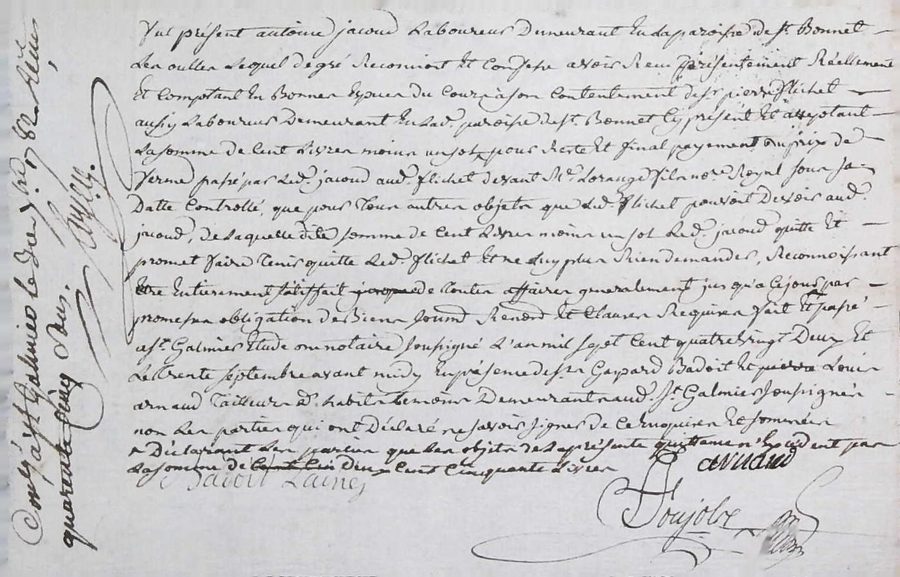 fut présent antoine jacoud Laboureur Demeurant En La paroisse de St. Bonnet
Les oulles Lequel de gré Reconnoit Et Confesse avoir Reçu présentement Réellement
Et Comptant En Bonnes Espèces du Cours à son Contentement de Sr. pierre flichet
aussy Laboureur Demeurant En Lad. paroisse de St. Bonnet Cy présent Et acceptant
La somme de Cent Livres moins un sol pour Reste Et final payement du prix de
ferme passé par Led. jacoud aud. flichet devant Me. Lorange fils nore Royal sous Sa
Datte Controllé, que pour Tous autres objets que Led. flichet pouvoit Devoir aud.
jacoud, de Laquelle dite somme de Cent Livres moins un sol Led. jacoud quitte Et
promet faire Tenir quitte Led. flichet Et ne Luy plus Rien demander, Reconnoissant
Etre Entierement Satisfait de Toutes affaires generalement jusqu'à Ce jour par
promesses obligation de Biens soumis Renon Et Clauses Requises fait Et passé
à St. Galmier Etude du notaire soussigné L'an mil sept Cent quatre vingt Deux Et
Le trente septembre avant midy En présence de Sr. Gaspard Badoit Et pierre Louis
arnaud Tailleur d'habits Temoins Demeurant aud. St. Galmier Soussignés
non Les parties qui ont Déclaré ne Savoir signer de Ce Enquises Et sommées
Déclarant Les parties que Les objets de La présente quittance n'Excedent pas
La somme de Cent Cin Deux Cent Cinquante Livres
Badoit Lainé
arnaud
Poujolz
Con. à St Galmier le dix 8bre 82 Reçu
quarante Cinq Sous.